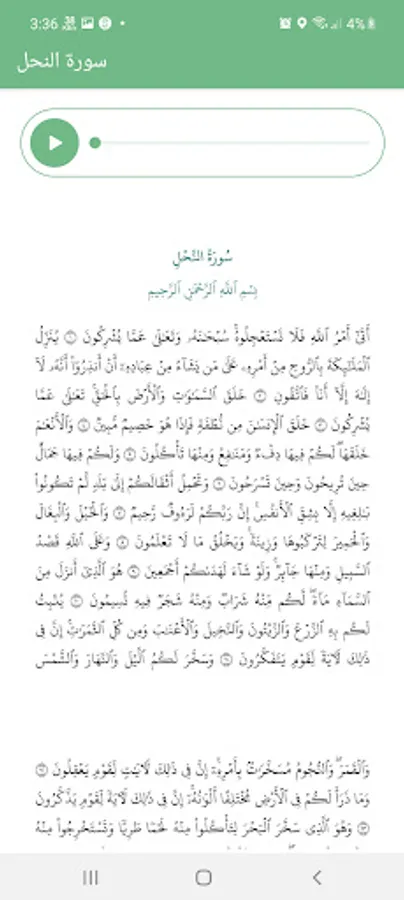 3:36
4%
سورة النحل
سُورَةُ النَّحْلِ
بِسْمِ ٱللَّهِ ٱلرَّحْمَٰنِ ٱلرَّحِيمِ
أَتَىٰٓ أَمْرُ ٱللَّهِ فَلَا تَسْتَعْجِلُوهُ ۚ سُبْحَٰنَهُۥ وَتَعَٰلَىٰ عَمَّا يُشْرِكُونَ ۝ يُنَزِّلُ
ٱلْمَلَٰٓئِكَةَ بِٱلرُّوحِ مِنْ أَمْرِهِۦ عَلَىٰ مَن يَشَآءُ مِنْ عِبَادِهِۦٓ أَنْ أَنذِرُوٓا۟ أَنَّهُۥ لَآ
إِلَٰهَ إِلَّآ أَنَا۠ فَٱتَّقُونِ ۝ خَلَقَ ٱلسَّمَٰوَٰتِ وَٱلْأَرْضَ بِٱلْحَقِّ ۚ تَعَٰلَىٰ عَمَّا
يُشْرِكُونَ ۝ خَلَقَ ٱلْإِنسَٰنَ مِن نُّطْفَةٍ فَإِذَا هُوَ خَصِيمٌ مُّبِينٌ ۝ وَٱلْأَنْعَٰمَ
خَلَقَهَا ۗ لَكُمْ فِيهَا دِفْءٌ وَمَنَٰفِعُ وَمِنْهَا تَأْكُلُونَ ۝ وَلَكُمْ فِيهَا جَمَالٌ
حِينَ تُرِيحُونَ وَحِينَ تَسْرَحُونَ ۝ وَتَحْمِلُ أَثْقَالَكُمْ إِلَىٰ بَلَدٍ لَّمْ تَكُونُوا۟
بَٰلِغِيهِ إِلَّا بِشِقِّ ٱلْأَنفُسِ ۚ إِنَّ رَبَّكُمْ لَرَءُوفٌ رَّحِيمٌ ۝ وَٱلْخَيْلَ وَٱلْبِغَالَ
وَٱلْحَمِيرَ لِتَرْكَبُوهَا وَزِينَةً ۚ وَيَخْلُقُ مَا لَا تَعْلَمُونَ ۝ وَعَلَى ٱللَّهِ قَصْدُ
ٱلسَّبِيلِ وَمِنْهَا جَآئِرٌ ۚ وَلَوْ شَآءَ لَهَدَىٰكُمْ أَجْمَعِينَ ۝ هُوَ ٱلَّذِىٓ أَنزَلَ مِنَ
ٱلسَّمَآءِ مَآءً ۖ لَّكُم مِّنْهُ شَرَابٌ وَمِنْهُ شَجَرٌ فِيهِ تُسِيمُونَ ۝ يُنۢبِتُ
لَكُم بِهِ ٱلزَّرْعَ وَٱلزَّيْتُونَ وَٱلنَّخِيلَ وَٱلْأَعْنَٰبَ وَمِن كُلِّ ٱلثَّمَرَٰتِ ۗ إِنَّ فِى
ذَٰلِكَ لَءَايَةً لِّقَوْمٍ يَتَفَكَّرُونَ ۝ وَسَخَّرَ لَكُمُ ٱلَّيْلَ وَٱلنَّهَارَ وَٱلشَّمْسَ
وَٱلْقَمَرَ ۖ وَٱلنُّجُومُ مُسَخَّرَٰتٌۢ بِأَمْرِهِۦٓ ۗ إِنَّ فِى ذَٰلِكَ لَءَايَٰتٍ لِّقَوْمٍ يَعْقِلُونَ ۝
وَمَا ذَرَأَ لَكُمْ فِى ٱلْأَرْضِ مُخْتَلِفًا أَلْوَٰنُهُۥٓ ۗ إِنَّ فِى ذَٰلِكَ لَءَايَةً لِّقَوْمٍ يَذَّكَّرُونَ
۝ وَهُوَ ٱلَّذِى سَخَّرَ ٱلْبَحْرَ لِتَأْكُلُوا۟ مِنْهُ لَحْمًا طَرِيًّا وَتَسْتَخْرِجُوا۟ مِنْهُ